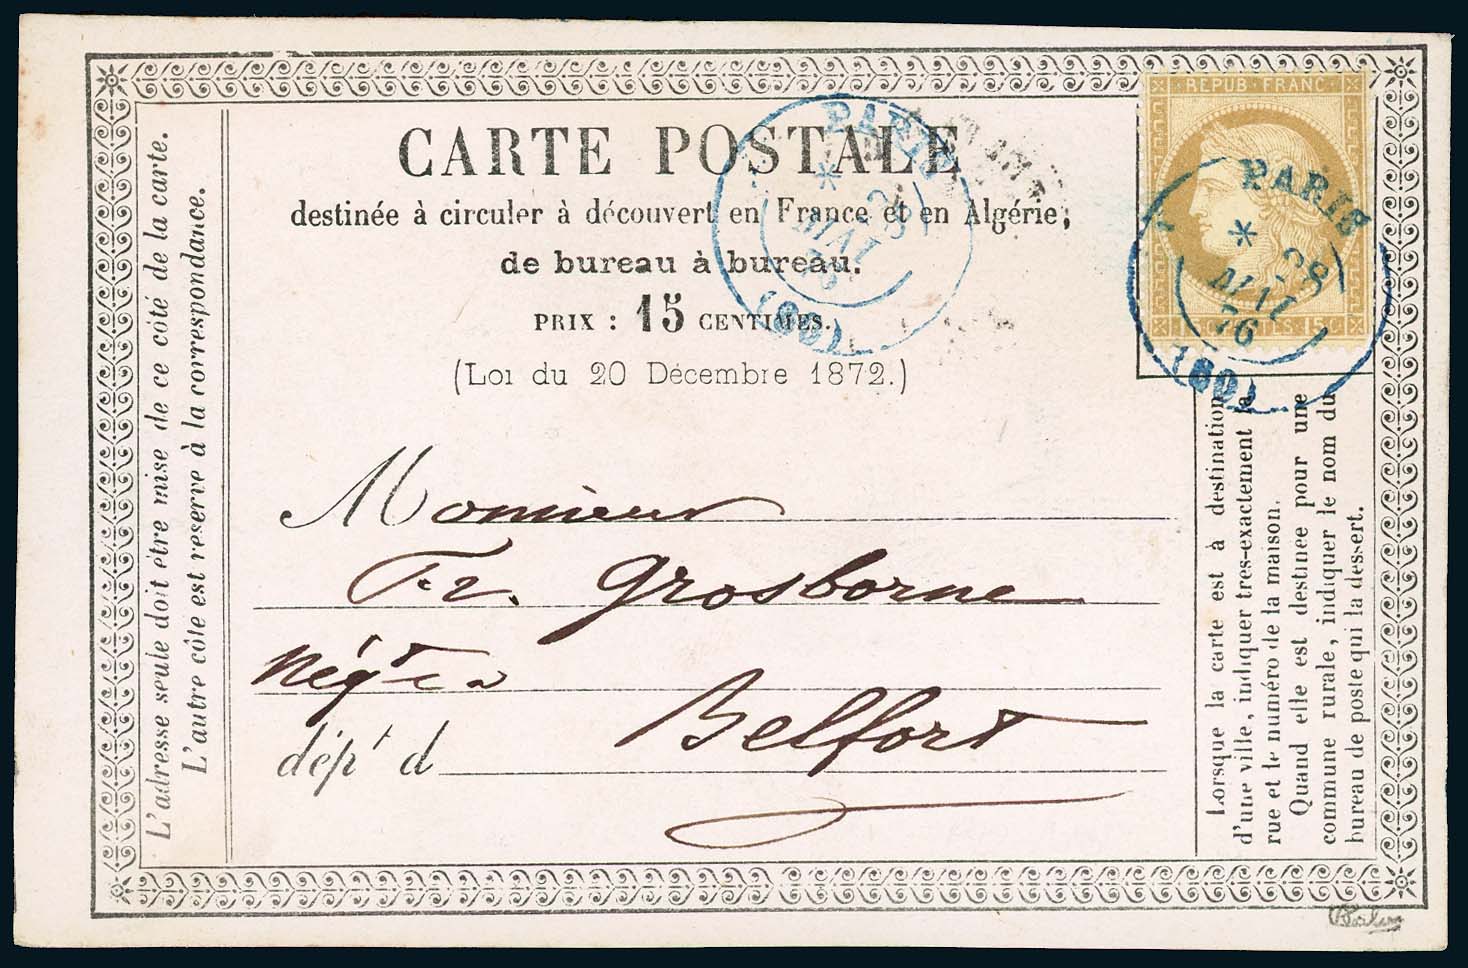 CARTE POSTALE
destinée à circuler à découvert en France et en Algérie,
de bureau à bureau.
PRIX : 15 CENTIMES.
(Loi du 20 Décembre 1872.)
PARIS
* 28
MAI
76
(60)
REPUB · FRANC
15 C
PARIS
* 28
MAI
76
(60)
L'adresse seule doit être mise de ce côté de la carte.
L'autre côté est réservé à la correspondance.
Monsieur
Fr. Grosborne
Nég.t
dép.t d
Belfort
Lorsque la carte est à destination
d'une ville, indiquer très-exactement la
rue et le numéro de la maison.
Quand elle est destinée pour une
commune rurale, indiquer le nom du
bureau de poste qui la dessert.